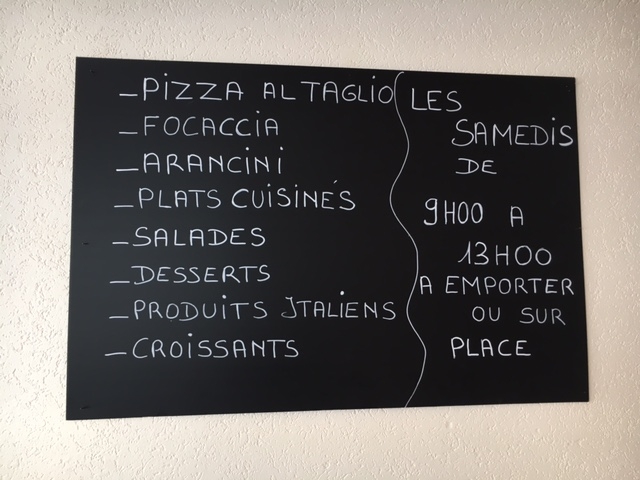 _PIZZA AL TAGLIO
_FOCACCIA
_ARANCINI
_PLATS CUISINÉS
_SALADES
_DESSERTS
_PRODUITS ITALIENS
_CROISSANTS
LES
SAMEDIS
DE
9H00 A
13H00
A EMPORTER
OU SUR
PLACE